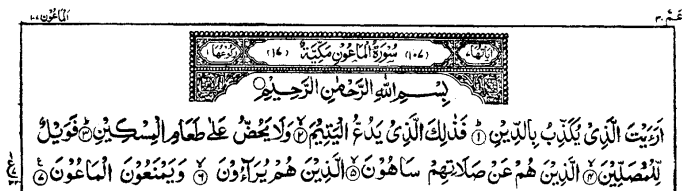 عَمَّ ٣٠ الماعون ١٠٧
اٰيَاتُهَا ٧ (١٠٧) سُوْرَةُ الْمَاعُوْنِ مَكِّيَّةٌ (١٧) رُكُوْعُهَا ١
بِسْمِ اللهِ الرَّحْمٰنِ الرَّحِيْمِ
اَرَءَيْتَ الَّذِىْ يُكَذِّبُ بِالدِّيْنِ ۱ فَذٰلِكَ الَّذِىْ يَدُعُّ الْيَتِيْمَ ۲ وَلَا يَحُضُّ عَلٰى طَعَامِ الْمِسْكِيْنِ ۳ فَوَيْلٌ
لِّلْمُصَلِّيْنَ ۴ الَّذِيْنَ هُمْ عَنْ صَلَاتِهِمْ سَاهُوْنَ ۵ الَّذِيْنَ هُمْ يُرَآءُوْنَ ۶ وَيَمْنَعُوْنَ الْمَاعُوْنَ ۷